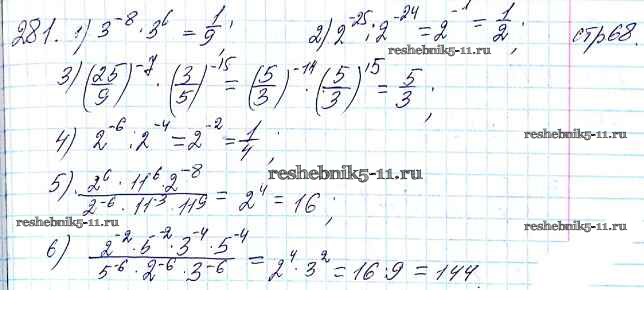 281. 1) 3⁻⁸ · 3⁶ = 1/9; 2) 2⁻²⁵ : 2⁻²⁴ = 2⁻¹ = 1/2; стр 68.
reshebnik5-11.ru
3) (25/9)⁻⁷ · (3/5)⁻¹⁵ = (5/3)⁻¹⁴ · (5/3)¹⁵ = 5/3;
4) 2⁻⁶ : 2⁻⁴ = 2⁻² = 1/4;
reshebnik5-11.ru
reshebnik5-11.ru
5) 2⁶ · 11⁶ · 2⁻⁸ / 2⁻⁶ · 11⁻³ · 11⁹ = 2⁴ = 16;
reshebnik5-11.ru
6) 2⁻² · 5⁻² · 3⁻⁴ · 5⁻⁴ / 5⁻⁶ · 2⁻⁶ · 3⁻⁶ = 2⁴ · 3² = 16 · 9 = 144.
reshebnik5-11.ru